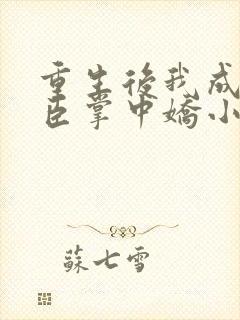 重生後我成
臣掌中嬌小
蘇七雪